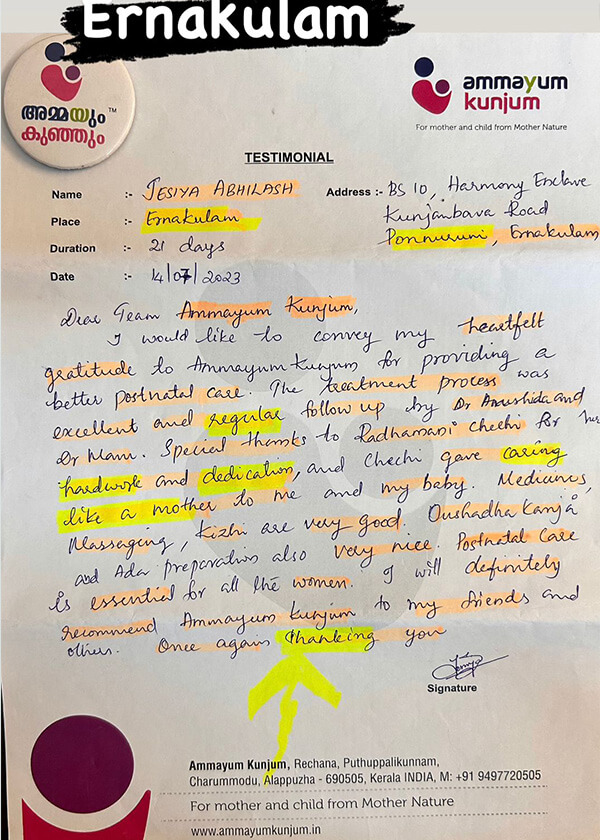 Ernakulam
അമ്മയും™
കുഞ്ഞും
ammayum
kunjum
For mother and child from Mother Nature
TESTIMONIAL
Name :- JESIYA ABHILASH
Place :- Ernakulam
Duration :- 21 days
Date :- 14/07/2023
Address :- BS 10, Harmony Enclave
Kunjanbava Road
Ponnuruni, Ernakulam
Dear Team Ammayum Kunjum,
I would like to convey my heartfelt
gratitude to Ammayum Kunjum for providing a
better postnatal care. The treatment process was
excellent and regular follow up by Dr Anushida and
Dr Manu. Special thanks to Radhamani chechi for her
hardwork and dedication, and Chechi gave caring
like a mother to me and my baby. Medicines,
Massaging, Kizhi are very good. Oushadha Kanji
and Ada preparation also very nice. Postnatal Care
is essential for all the women. I will definitely
recommend Ammayum Kunjum to my friends and
others. Once again thanking you
Signature
Ammayum Kunjum, Rechana, Puthuppalikunnam,
Charummodu, Alappuzha - 690505, Kerala INDIA, M: +91 9497720505
For mother and child from Mother Nature
www.ammayumkunjum.in